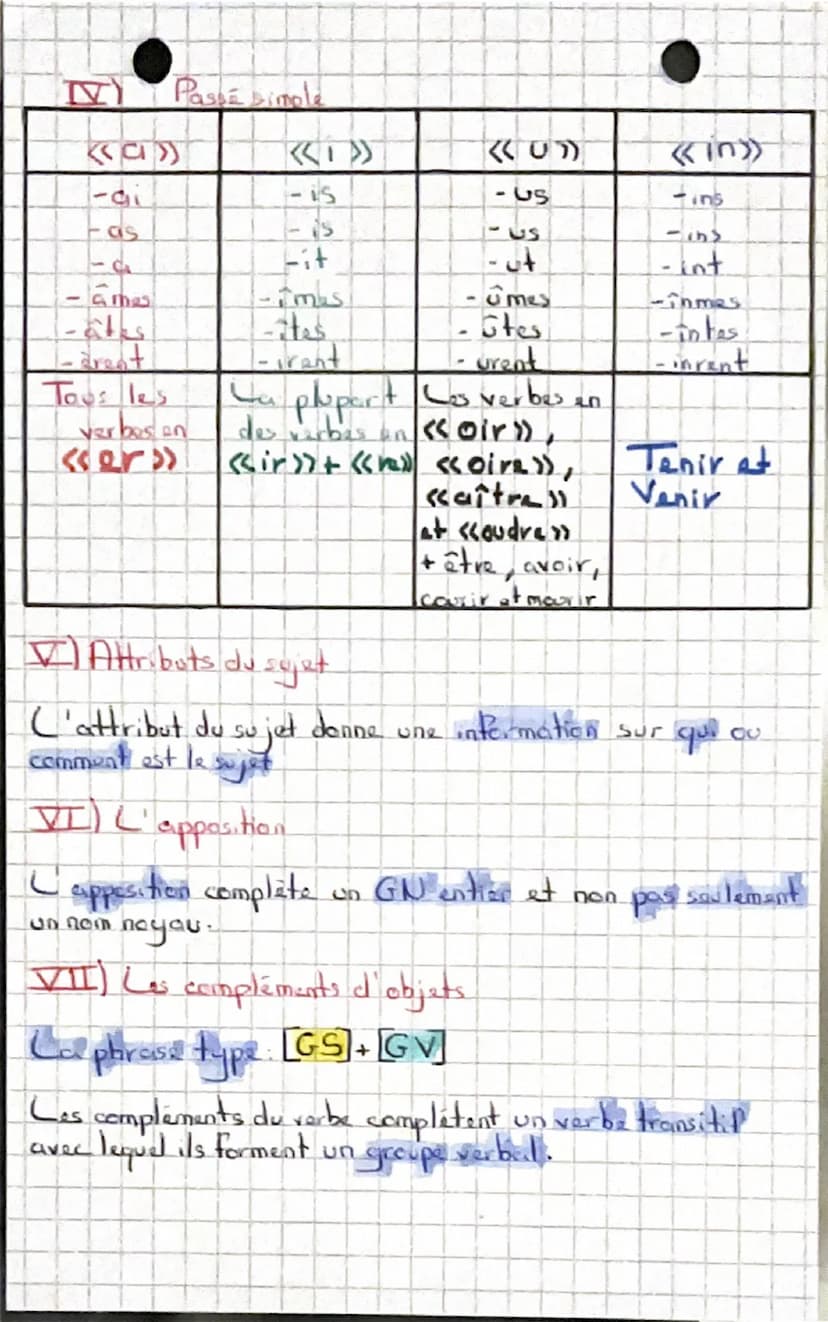 IV) Passé simple
<<a>> <<i>> <<u>> <<in>>
-ai -is -us -ins
-as -is -us -ins
-a -it -ut -int
-âmes -îmes -ûmes -înmes
-âtes -îtes -ûtes -întes
-èrent -irent -urent -inrent
Tous les La plupart Les verbes en
verbes en des verbes en <<oir>>,
<<er>> <<ir>> + <<re>> <<oire>>, Tenir et
<<aître>> Venir
et <<oudre>>
+ être, avoir,
courir et mourir
V) Attributs du sujet
L'attribut du sujet donne une information sur qui ou
comment est le sujet
VI) L'apposition
L'apposition complète un GN entier et non pas seulement
un nom noyau.
VII) Les compléments d'objets
La phrase type : [GS] + [GV]
Les compléments du verbe complètent un verbe transitif
avec lequel ils forment un groupe verbal.